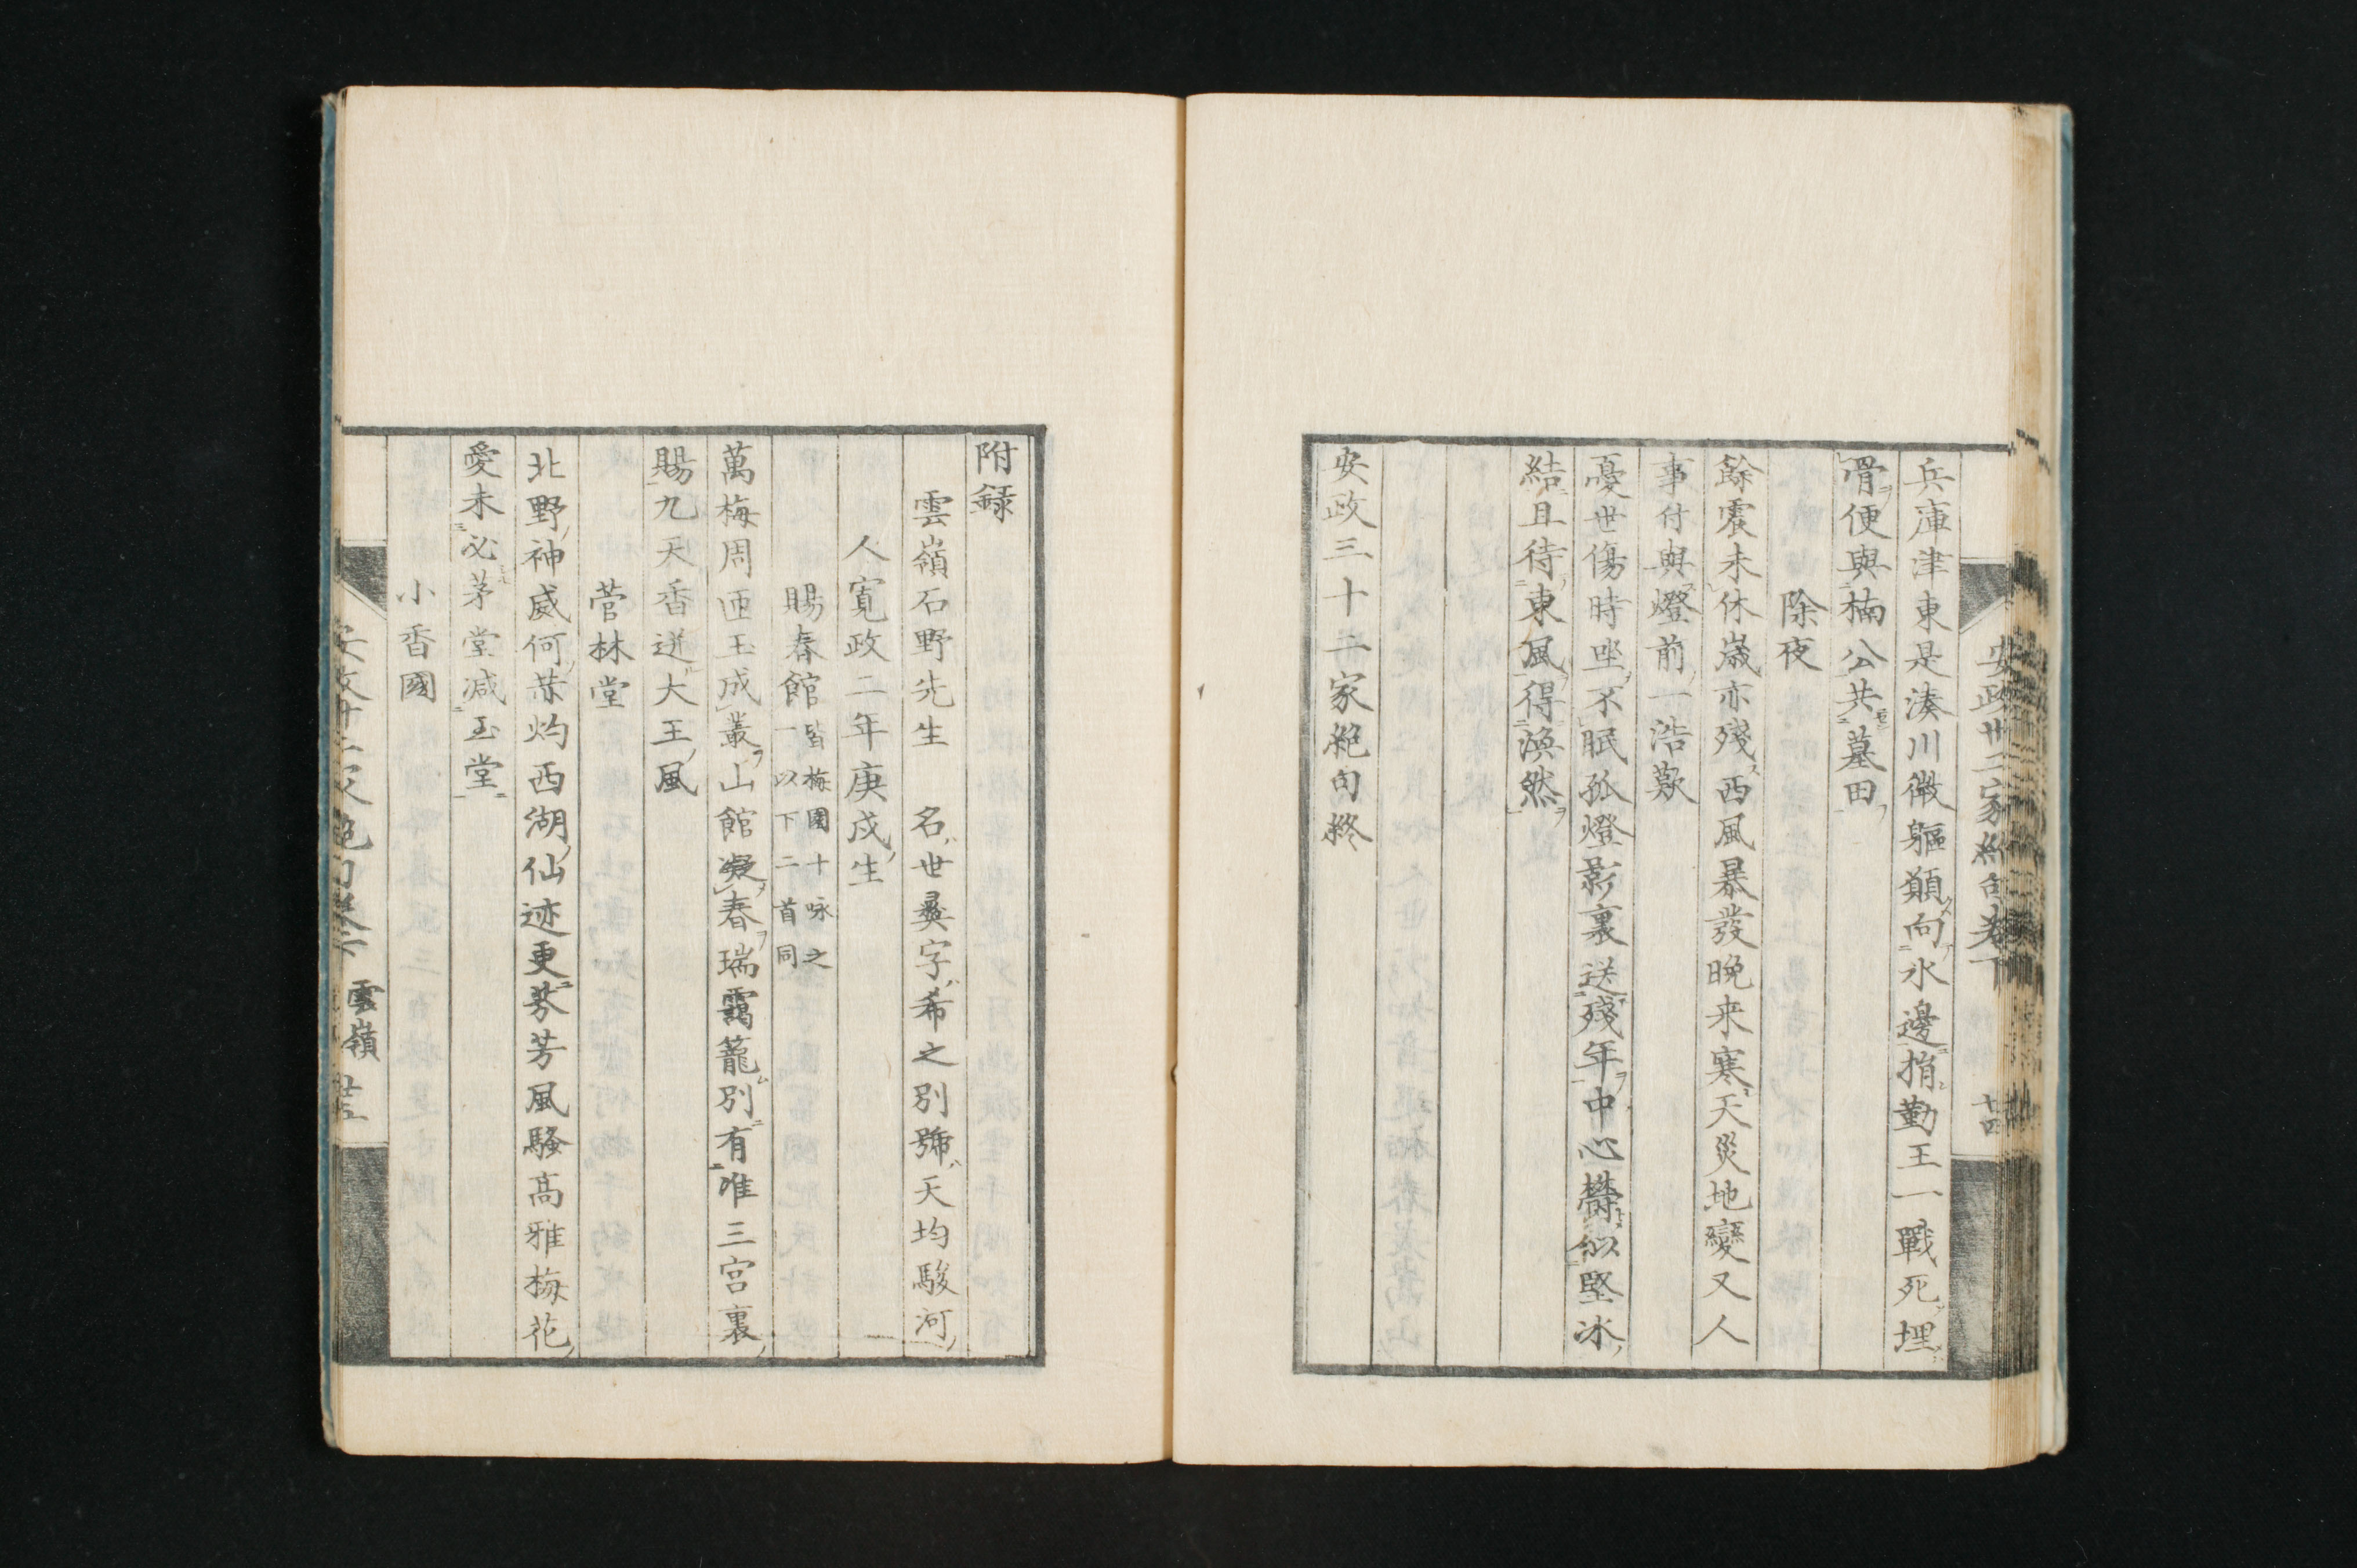 兵庫津東是湊川微軀願向水邊捐勤王一戰死埋
骨便與楠公共墓田
除夜
餘震未休歲亦殘西風暴發晚来寒天災地變又人
事付與燈前一浩歎
憂世傷時坐不眠孤燈影裏送殘年中心欝似堅冰
結且待東風得渙然
安政三十二家絶句終
附録
雲嶺石野先生 名世彝字希之別號天均駿河
人寛政二年庚戌生
賜春館 皆梅園十咏之
一以下二首同
萬梅周匝玉成叢山館凝春瑞靄籠別有准三宮裏
賜九天香迸大王風
菅林堂
北野神威何赫灼西湖仙迹更芬芳風騷高雅梅花
愛未必茅堂減玉堂
小香國
雲嶺